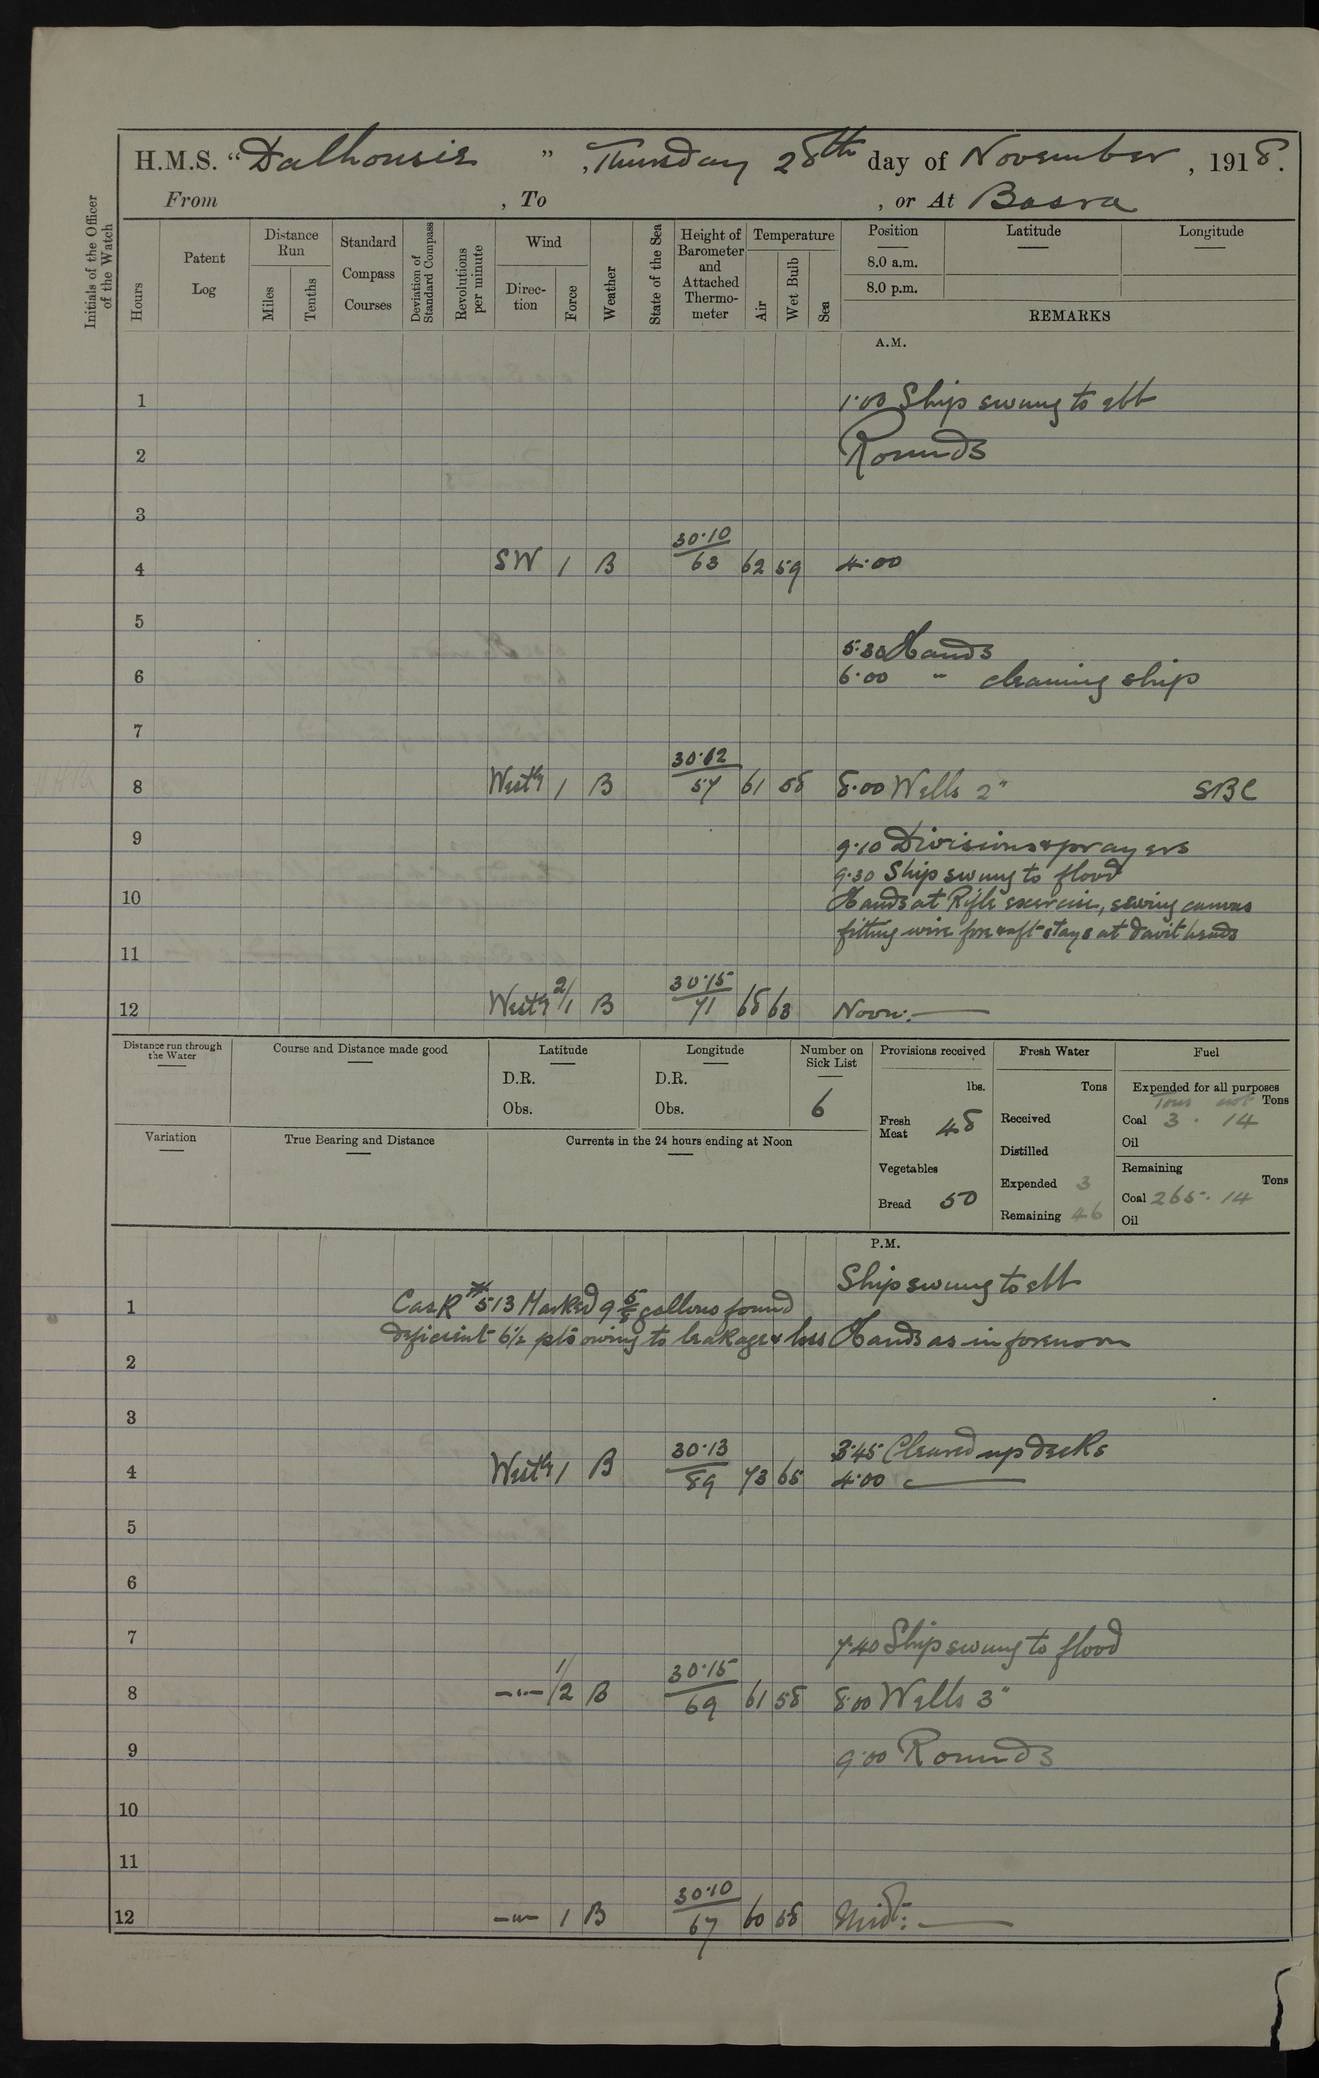 H.M.S. "Dalhousie", Thursday 28th day of November, 1918.
From , To , or At Basra
Initials of the Officer of the Watch
Hours
Patent Log
Distance Run
Miles
Tenths
Standard Compass Courses
Deviation of Standard Compass
Revolutions per minute
Wind
Direc-tion
Force
Weather
State of the Sea
Height of Barometer and Attached Thermo-meter
Temperature
Air
Wet Bulb
Sea
Position
8.0 a.m.
8.0 p.m.
Latitude
Longitude
REMARKS
A.M.
1 1.00 Ship swung to ebb
2 Rounds
3
4 SW 1 B 30.10/63 62 59 4.00
5
5.30 Hands
6 6.00 " cleaning ship
7
8 West'y 1 B 30.12/57 61 58 8.00 Wells 2" SBC
9 9.10 Divisions & prayers
9.30 Ship swung to flood
10 Hands at Rifle exercise, sewing canvas
fitting wire fore & aft stays at davit heads
11
12 West'y 2/1 B 30.15/71 68 63 Noon:
Distance run through the Water
Course and Distance made good
Latitude
D.R.
Obs.
Longitude
D.R.
Obs.
Number on Sick List
6
Provisions received
lbs.
Fresh Meat 48
Vegetables
Bread 50
Fresh Water
Tons
Received
Distilled
Expended 3
Remaining 46
Fuel
Expended for all purposes
Tons cwt Tons
Coal 3 . 14
Oil
Remaining
Tons
Coal 265 . 14
Oil
Variation
True Bearing and Distance
Currents in the 24 hours ending at Noon
P.M.
Ship swung to ebb
1 Cask # 513 Marked 9 5/8 gallons found
deficient 6½ pts owing to leakage & loss Hands as in forenoon
2
3
3.45 Cleared up decks
4 West'y 1 B 30.13/89 73 65 4.00
5
6
7 7.40 Ship swung to flood
8 —"— 1/2 B 30.15/69 61 58 8.00 Wells 3"
9 9.00 Rounds
10
11
12 —"— 1 B 30.10/67 60 58 Midt: